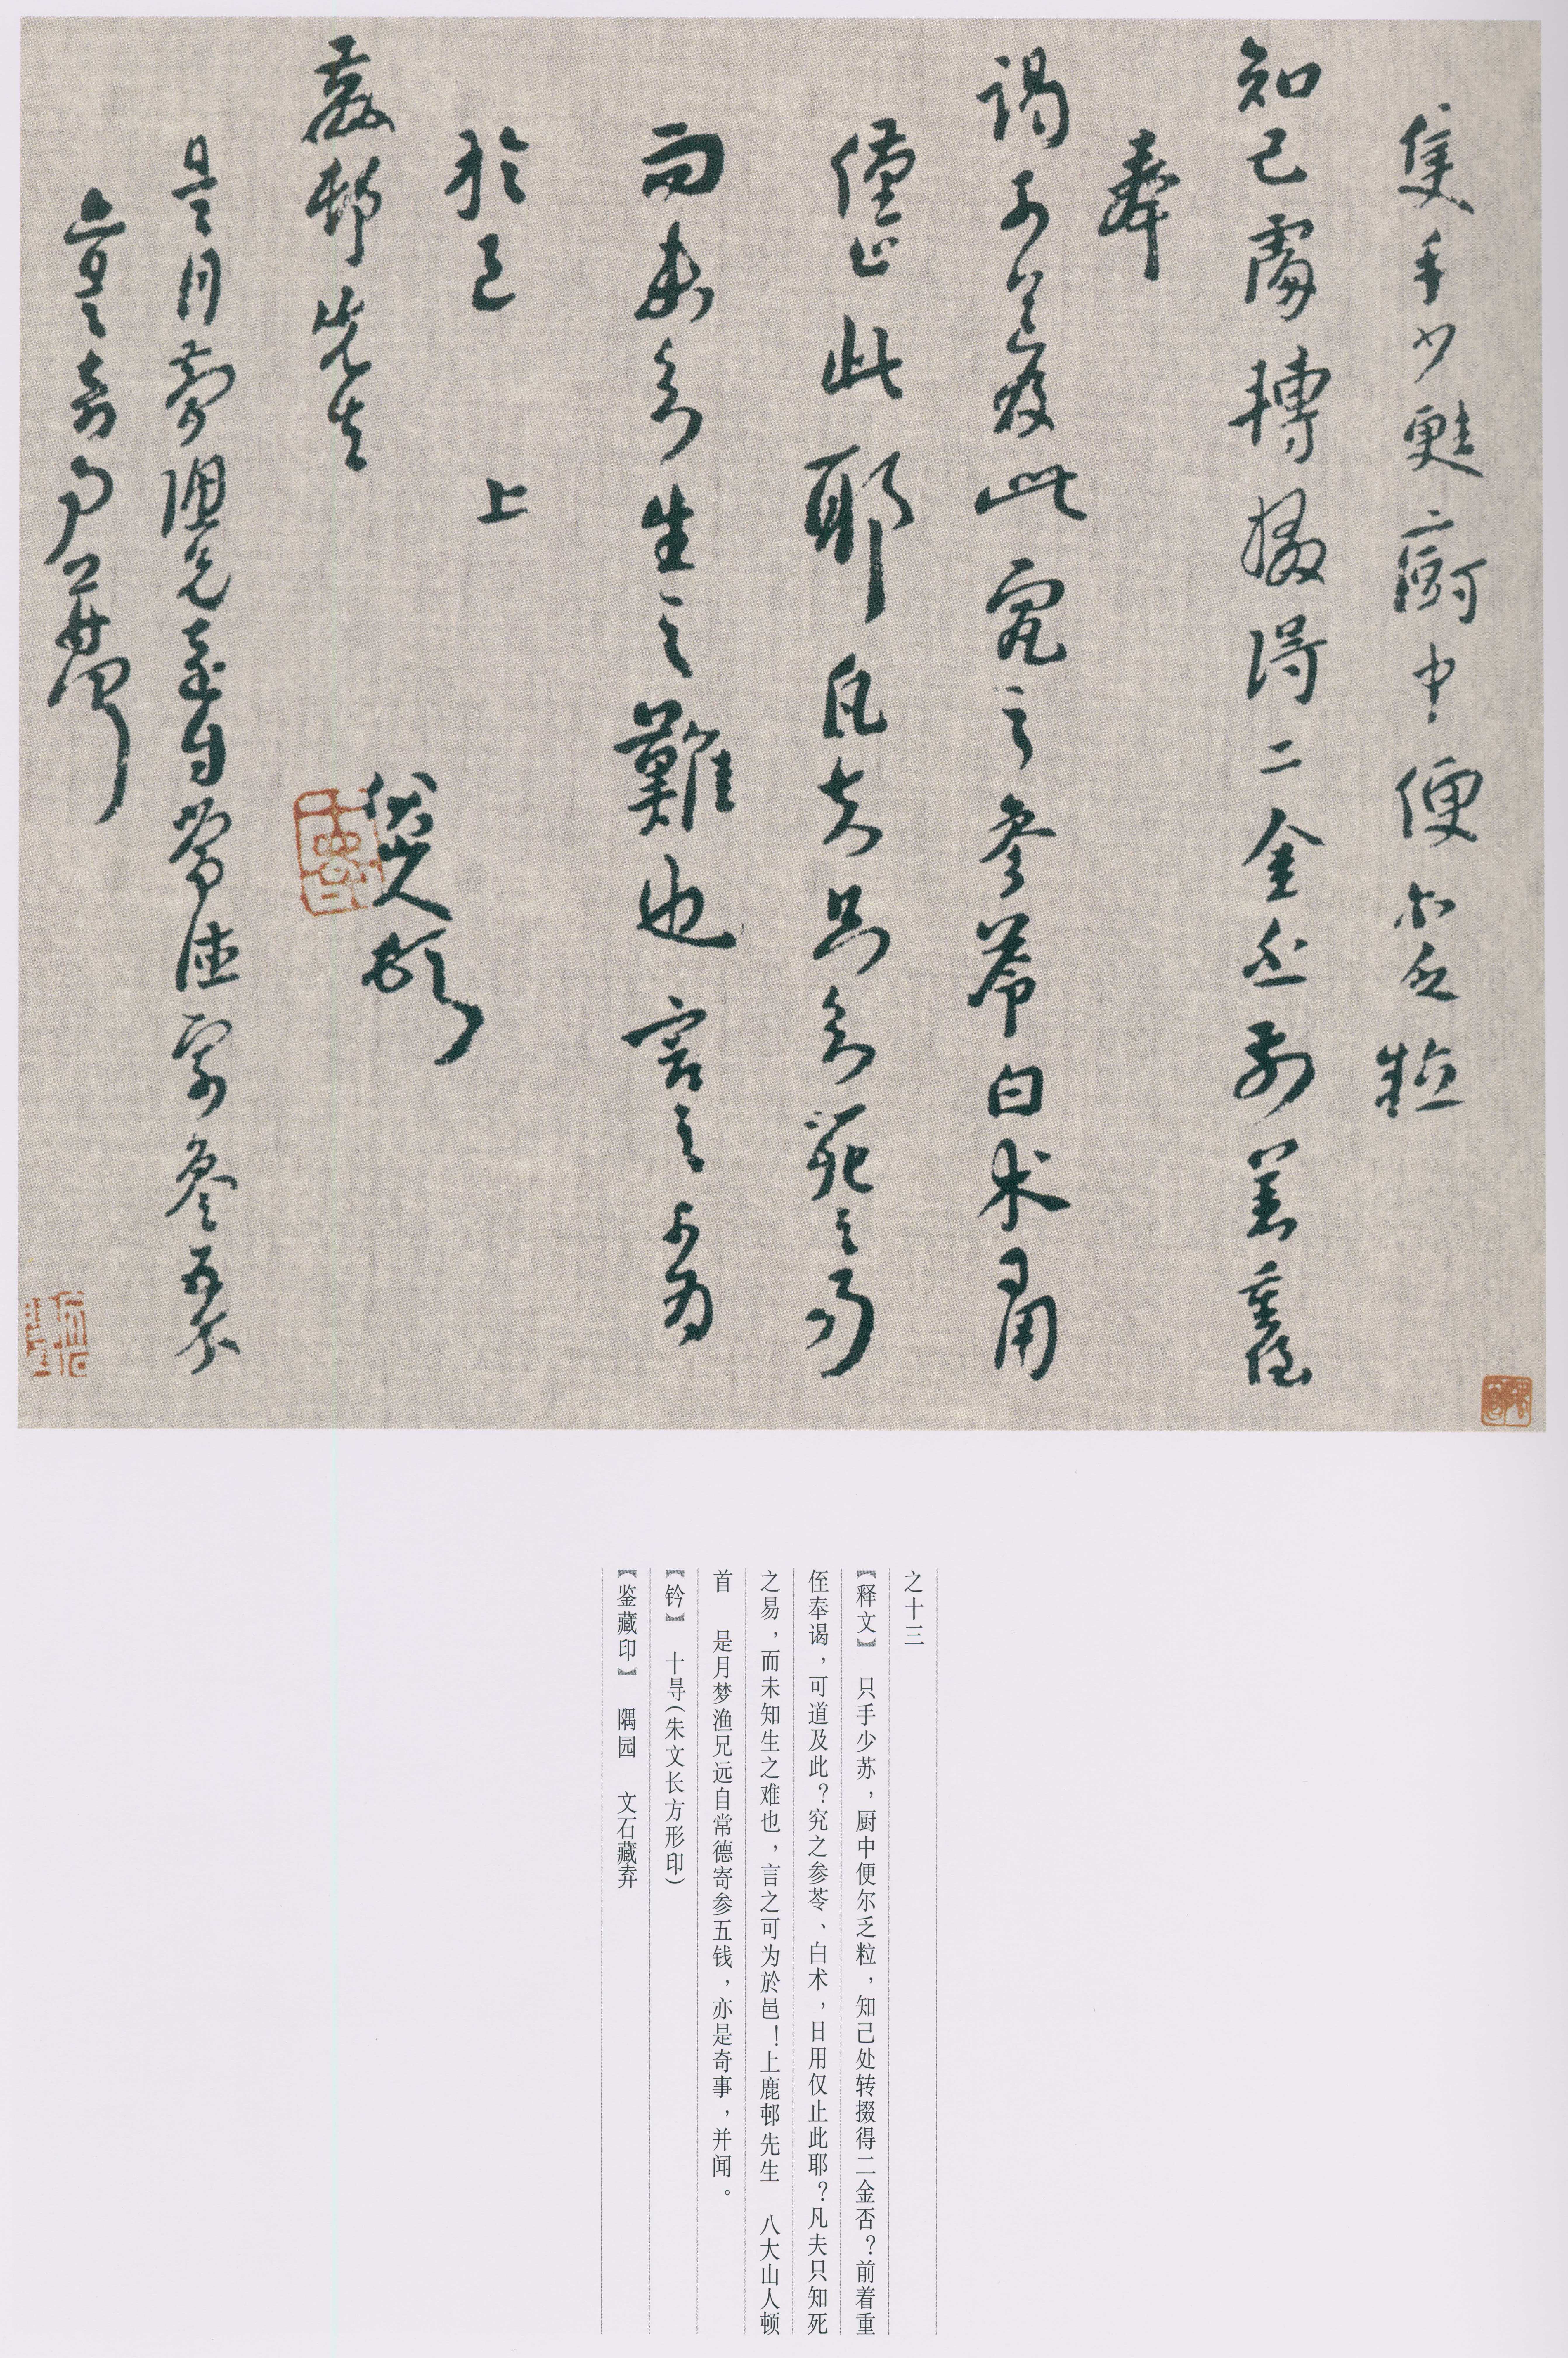 隻手少甦厨中便尔乏粒
知己處轉掇得二金否前著重侄
奉
謁可道及此究之參苓白术日用
僅止此耶凡夫只知死之易
而未知生之難也言之可為
於邑 上
鹿邨先生
八大山人頓首
是月夢漁兄遠自常德寄參五錢
亦是奇事并聞
之十三
【释文】 只手少苏，厨中便尔乏粒，知己处转掇得二金否？前着重
侄奉谒，可道及此？究之参苓、白术，日用仅止此耶？凡夫只知死
之易，而未知生之难也，言之可为於邑！上鹿邨先生 八大山人顿
首 是月梦渔兄远自常德寄参五钱，亦是奇事，并闻。
【钤】 十㝵（朱文长方形印）
【鉴藏印】 隅园 文石藏弆